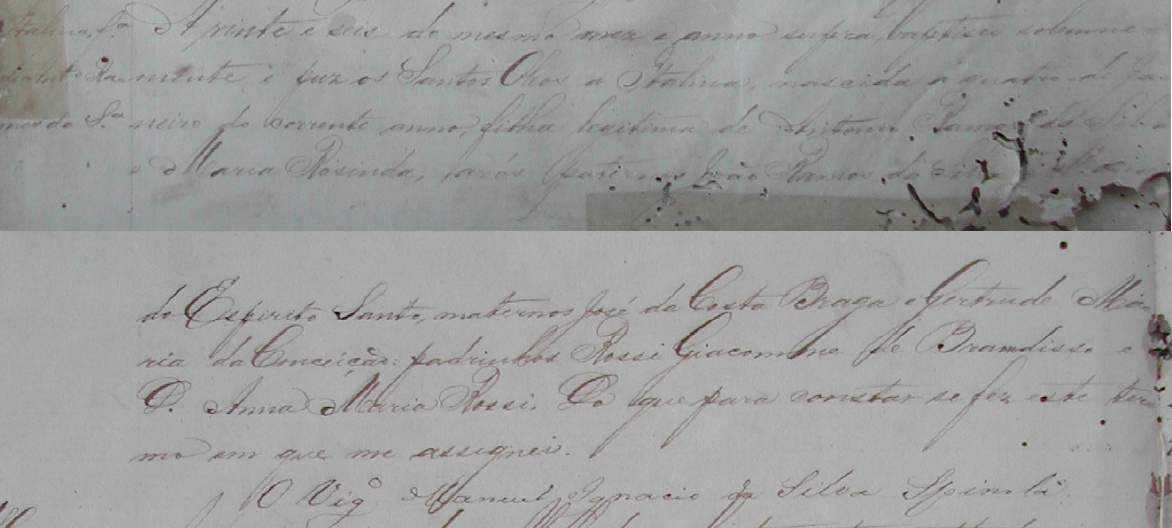 Italina, f.ª A vinte e seis do mesmo mez e anno supra, baptisei solemne-
mente e puz os Santos Oleos a Italina, nascida a quatro de Ja-
neiro do corrente anno, filha legitima de Antonio Ramos da Silva
e Maria Rosinda, avós paternos João Ramos da Silva
do Espirito Santo, maternos José da Costa Braga e Gertrude Ma-
ria da Conceição: padrinhos Rossi Giacomone de Bramdisso e
D. Anna Maria Rossi. Do que para constar se fez este ter-
mo em que me assignei.
O Vig.º Manuel Ignacio da Silva Spinola